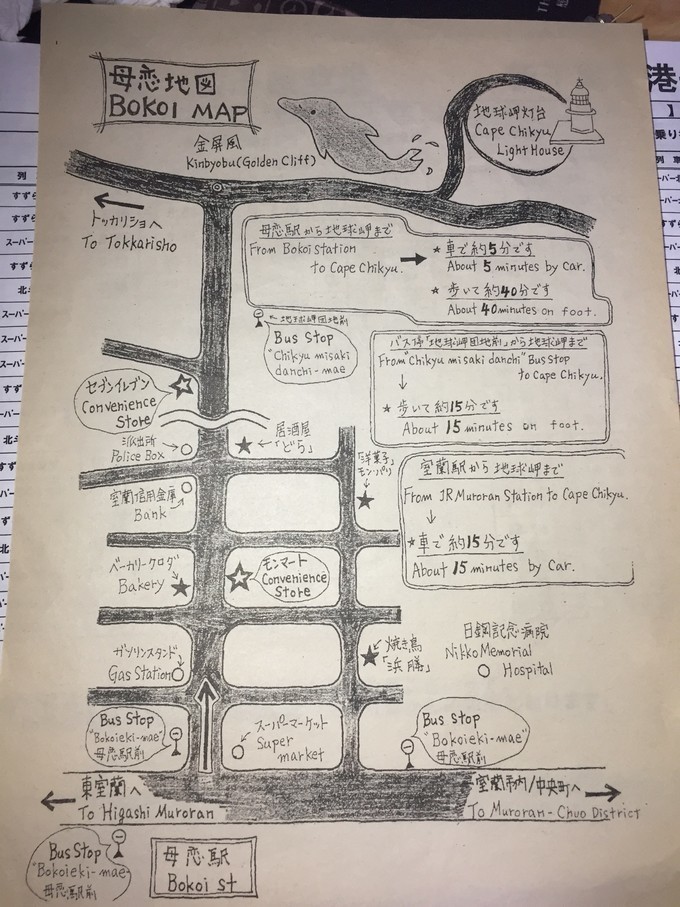 母恋地図
BOKOI MAP
地球岬灯台
Cape Chikyu
LightHouse
金屏風
Kinbyobu(Golden Cliff)
トッカリショへ
To Tokkarisho
母恋駅から地球岬まで
From Bokoi station
to Cape Chikyu.
★車で約5分です
About 5 minutes by car.
★歩いて約40分です
About 40 minutes on foot.
←地球岬団地前
Bus Stop
"Chikyu misaki
danchi-mae
バス停「地球岬団地前」から地球岬まで
From "Chikyu misaki danchi" Bus Stop
to Cape Chikyu.
★歩いて約15分です
About 15 minutes on foot.
セブンイレブン
Convenience
Store
派出所
Police Box
居酒屋
「どら」
「洋菓子」
モンパリ
室蘭駅から地球岬まで
From JR Muroran Station to Cape Chikyu.
★車で約15分です
About 15 minutes by car.
室蘭信用金庫
Bank
ベーカリークロダ
Bakery
モンマート
Convenience
Store
ガソリンスタンド
Gas Station
焼き鳥
「浜勝」
日鋼記念病院
Nikko Memorial
Hospital
Bus Stop
"Bokoieki-mae"
母恋駅前
スーパーマーケット
Super
market
Bus Stop
"Bokoieki-mae"
母恋駅前
東室蘭へ
To Higashi Muroran
室蘭市内/中央町へ
To Muroran-Chuo District
Bus Stop
"Bokoieki-mae"
母恋駅前
母恋駅
Bokoi st